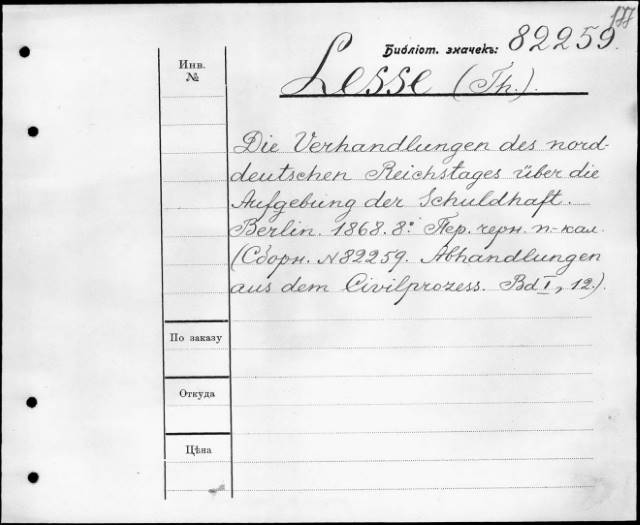 177
Библіот. значекъ: 82259.
Инв.
№
Lesse (Th.).
Die Verhandlungen des nord-
deutschen Reichstages über die
Aufgebung der Schuldhaft.
Berlin. 1868. 8° Пер. черн. п.-кал.
(Сборн. №82259. Abhandlungen
aus dem Civilprozess. Bd I, 12.).
По заказу
Откуда
Цѣна